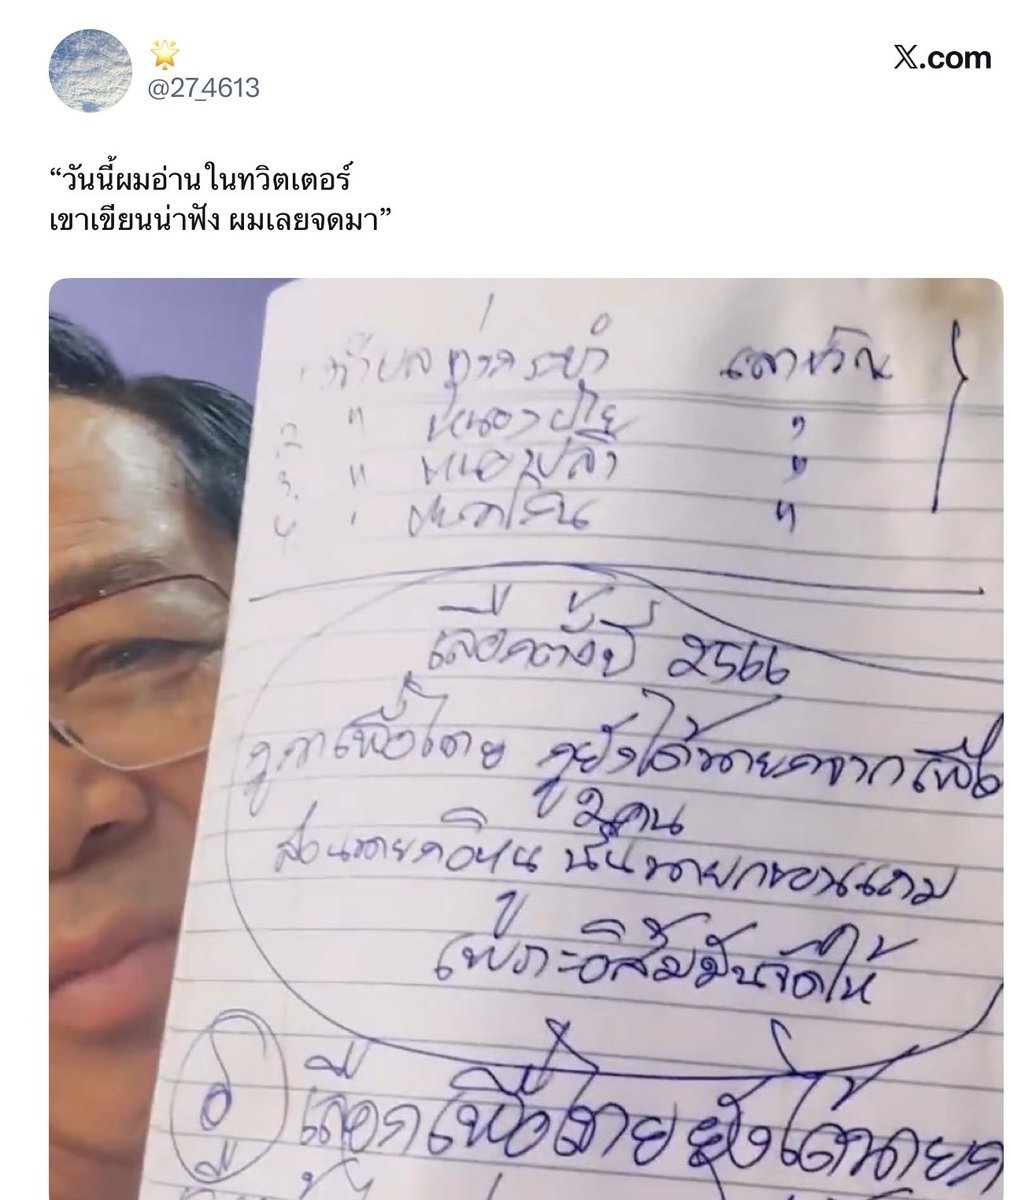 @27_4613
X.com
“วันนี้ผมอ่านในทวิตเตอร์
เขาเขียนน่าฟัง ผมเลยจดมา”
ตำบล ท่ากระยำ เลาขวัญ
2 " หนองฝ้าย "
3. " หนองปลา "
4 "
เลือกตั้งปี 2566
กูกาเพื่อไทย กูยังได้นายกจากเพื่อ
2 คน
ส่วนนายกอีหนู นั่นนายกของแถม
เพราะอีส้มมันจัดให้
เลือกเพื่อไทย ยังได้นายก